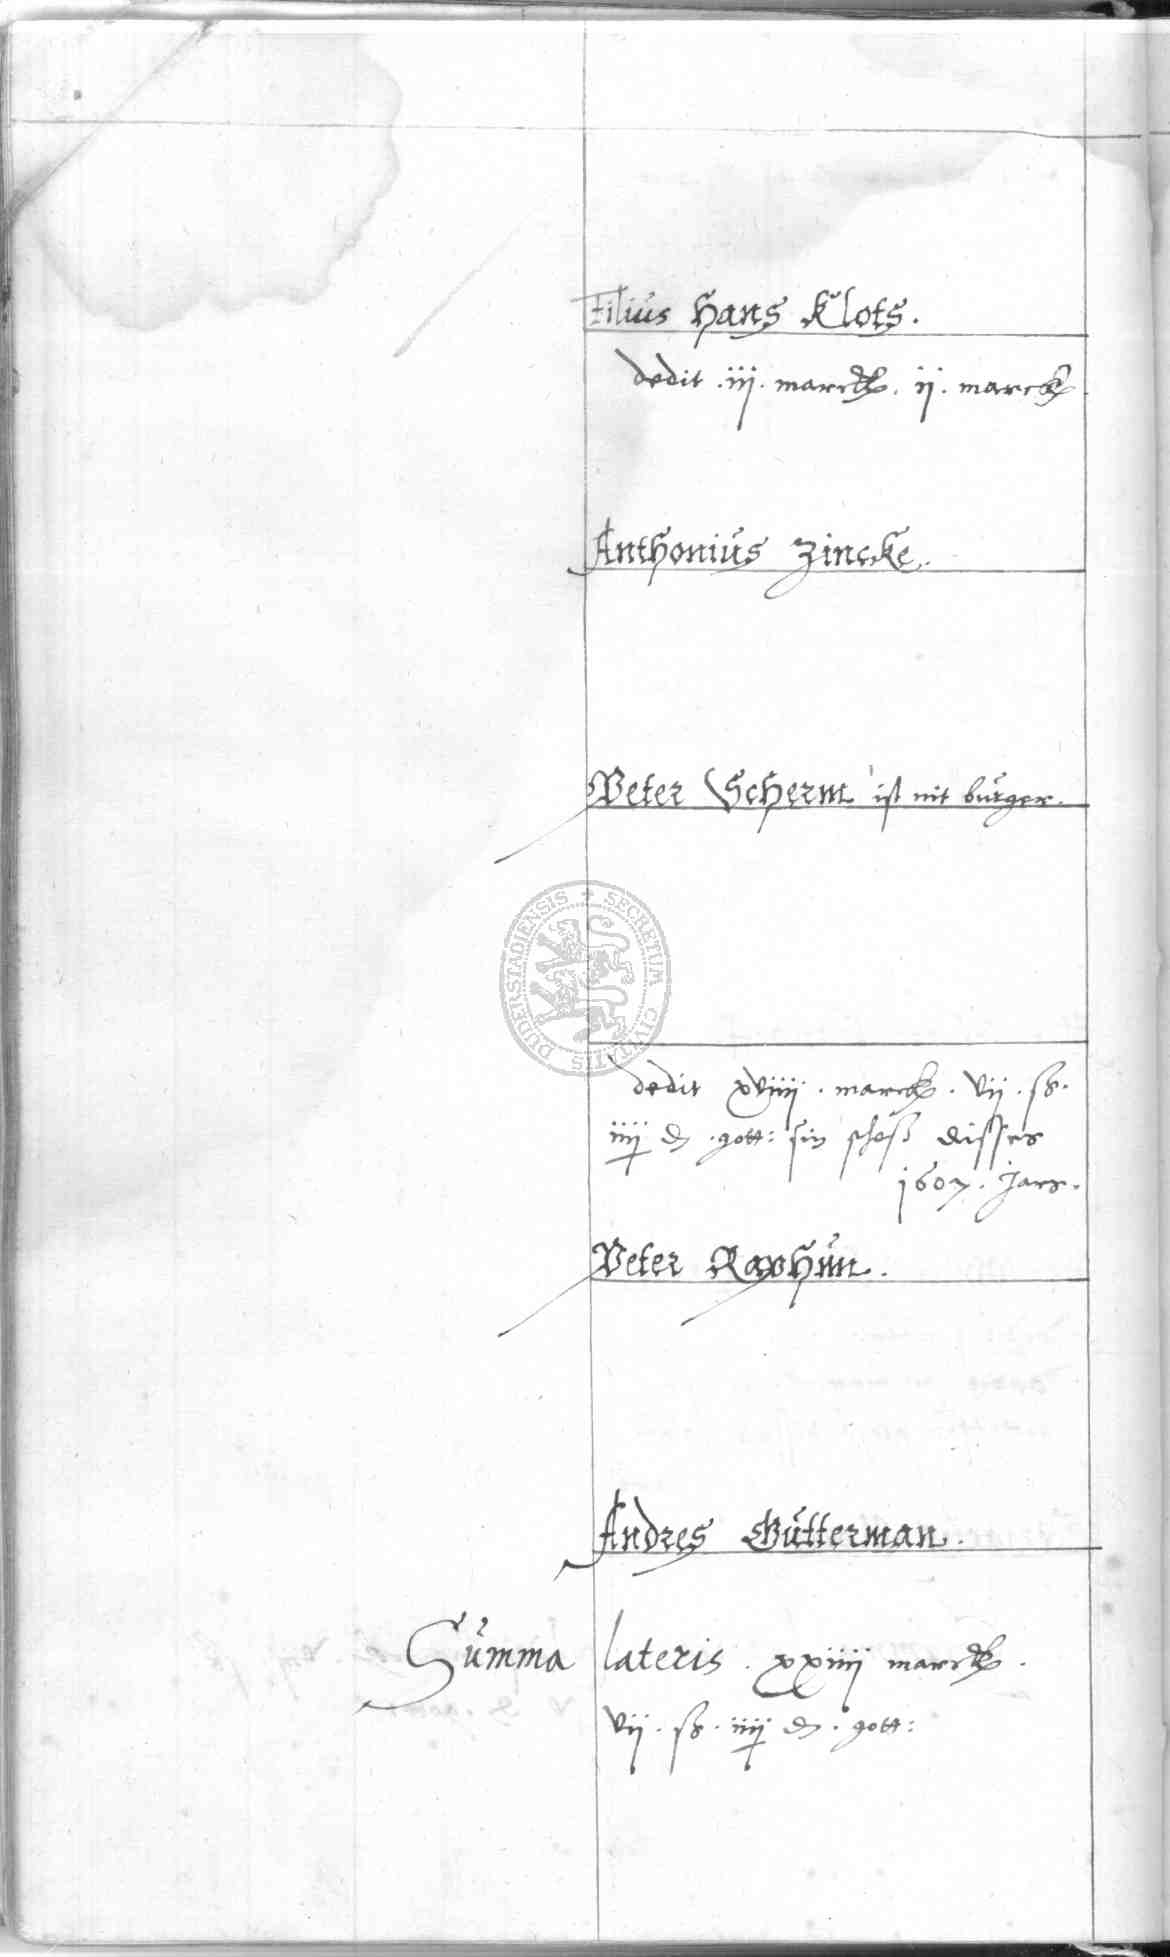 Filius Hans Klots.
dedit .iij. marck. ij. marck.
Anthonius Zincke.
Peter Scherm ist nit burger.
SECRETUM CIVITATIS DUDERSTADIENSIS
dedit xviiij. marck. vij. ß.
iiij ₰. gott: sin schoß disses
1607. Jars.
Peter Raphun.
Andres Gutterman.
Summa lateris. xxiiij marck.
vij. ß. iiij ₰. gott: